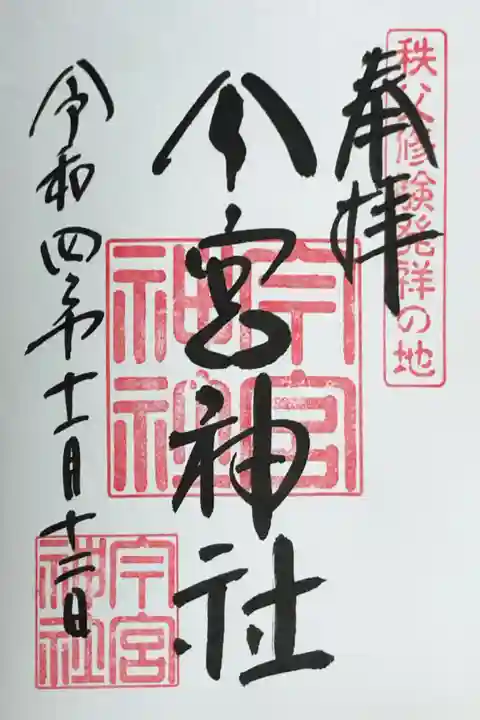 秩父修験発祥の地
奉拝
今宮神社
今宮
神社
令和四年十一月十二日
今宮
神社